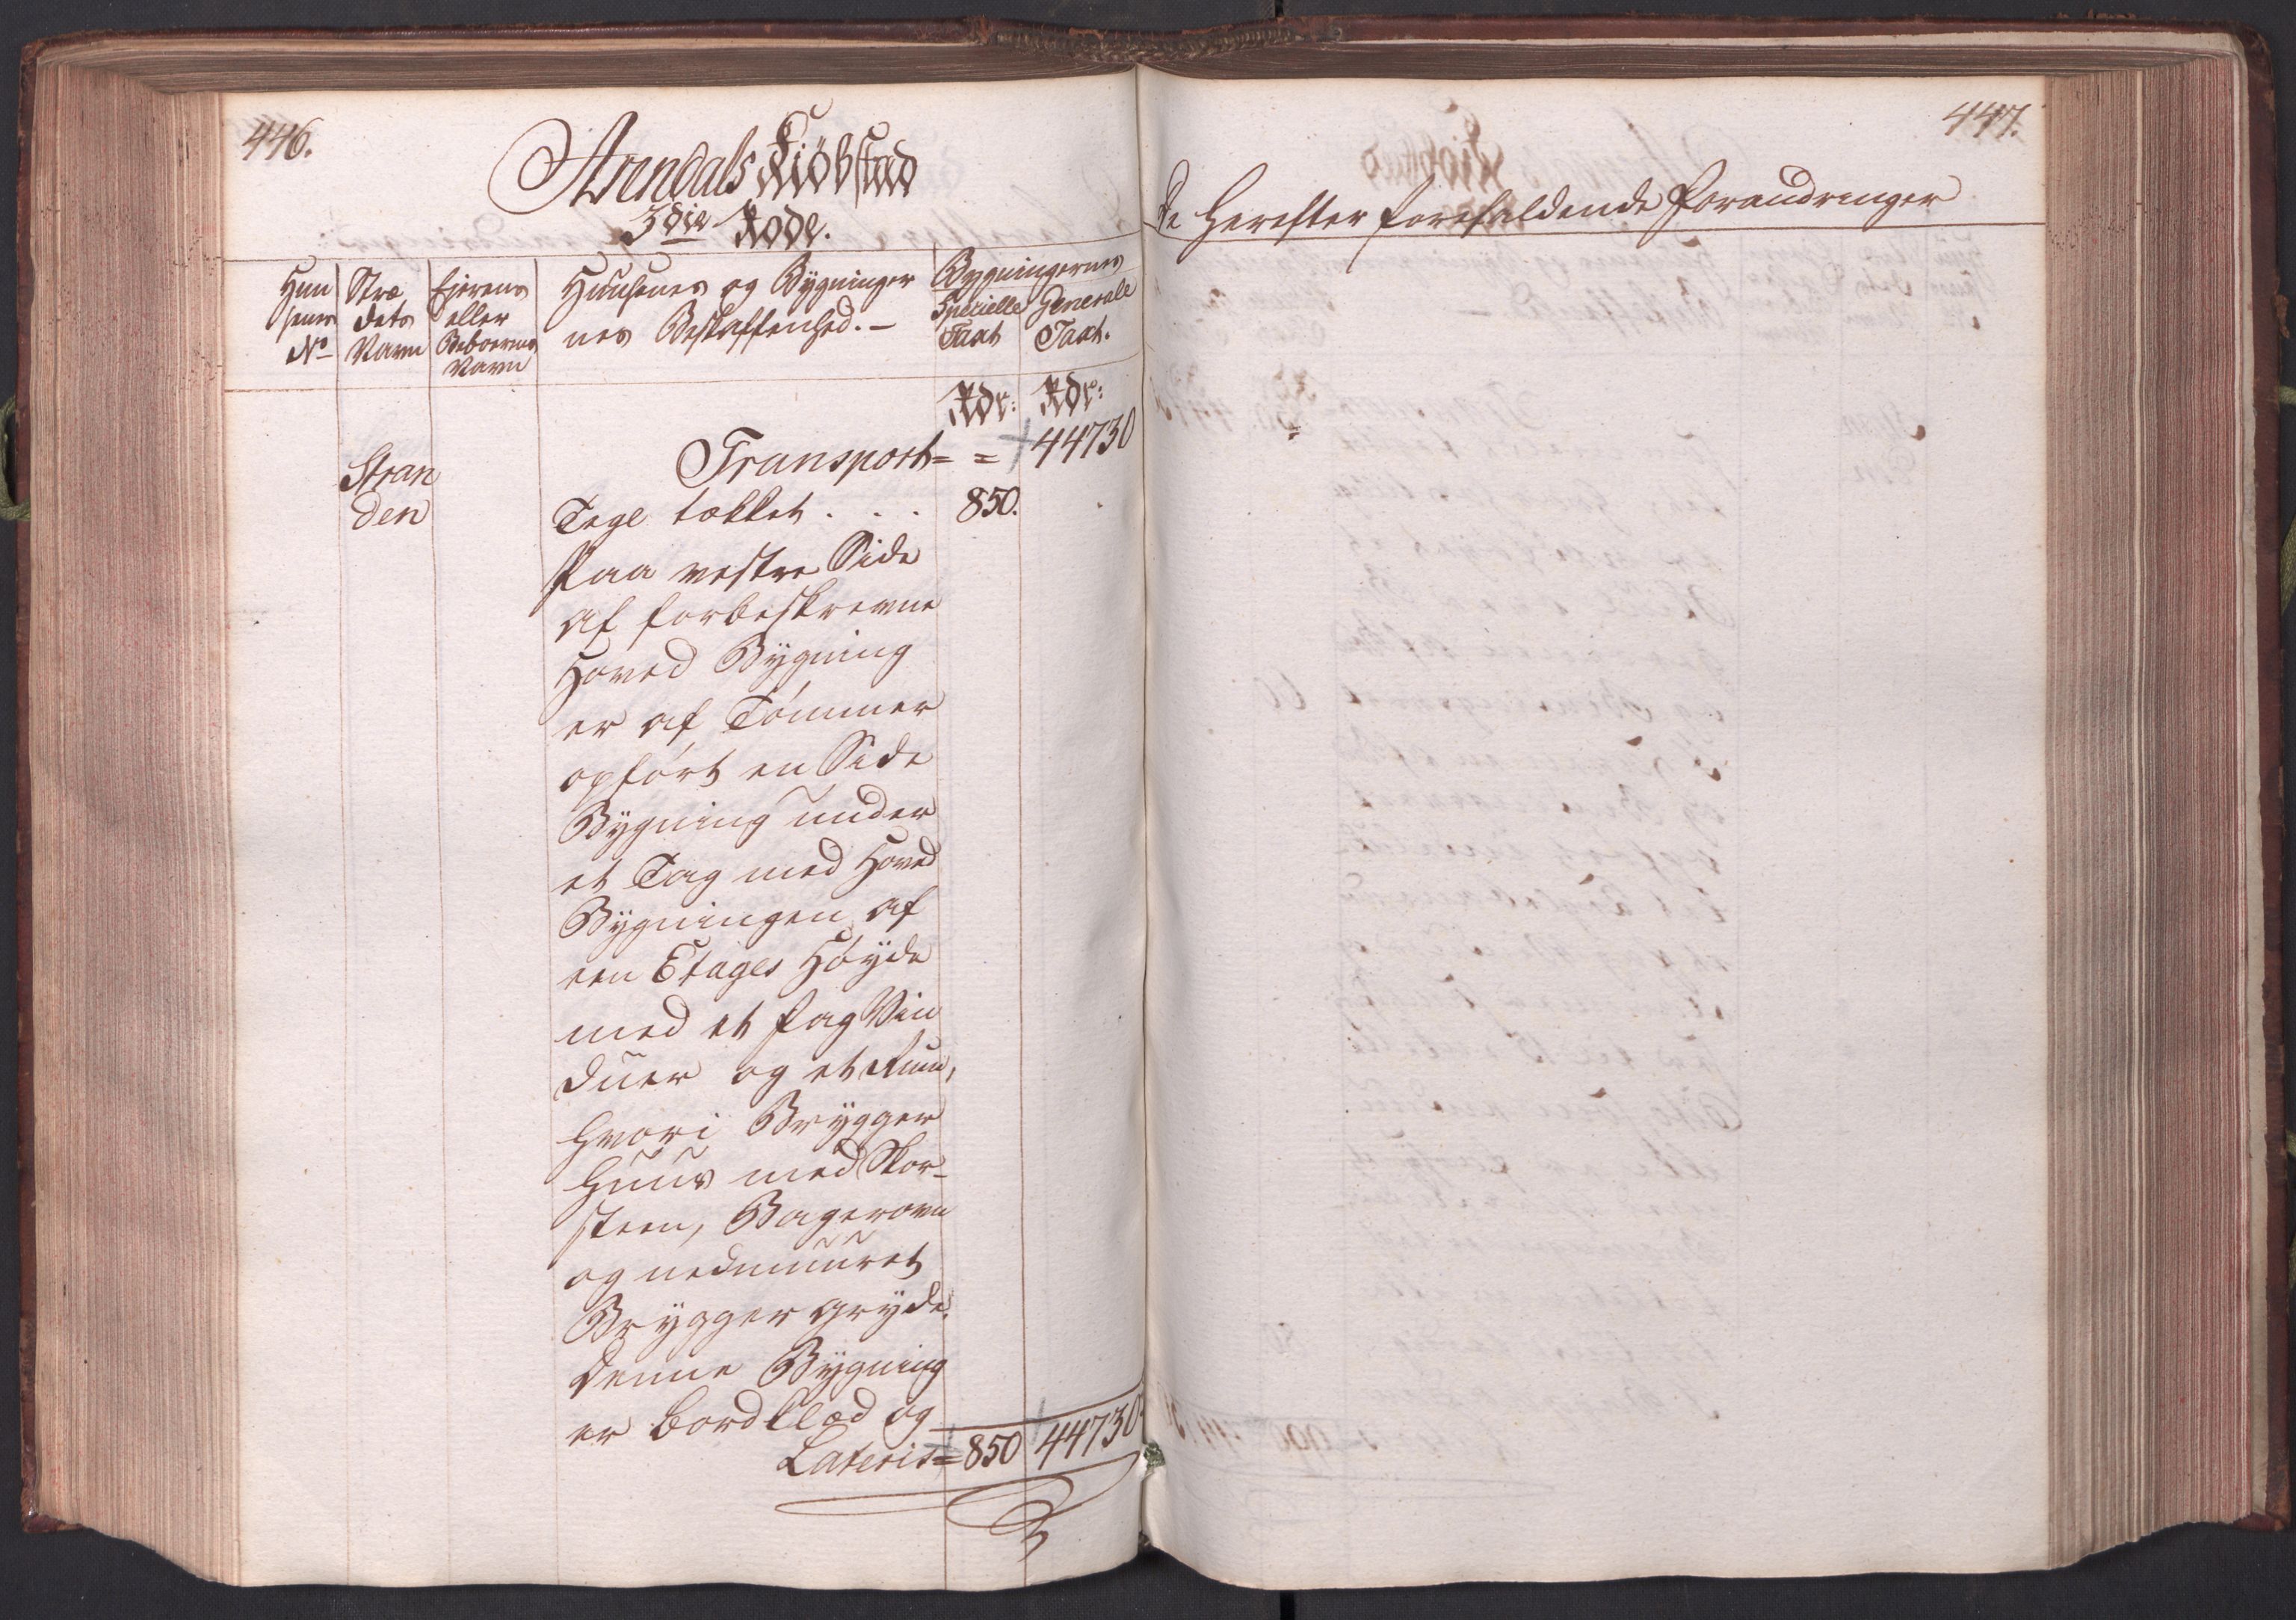 446.
Arendals Kiöbstad
3die Rode.
Huu
senes
No
Stræ
dets
Navn
Ejerens
eller
Beboernes
Navn
Huusenes og Bÿgninger
nes Beskaffenhed. -
Bygningernes
Specielle
Taxt
Generale
Taxt.
Rdr: Rdr:
Transport = = 44730
Stran
den
Tegl tækket . . . 850.
Paa vestre Side
af forbeskrevne
Hoved Bÿgning
er af Tømmer
opført en Side
Bÿgning under
et Tag med Hoved
Bÿgningen af
een Etages Høÿde
med et fag Vin
duer og et Rum,
hvori Brÿgger
Huus med Skor-
steen, Bagerovn
og nedmuuret
Brÿgger grÿde.
Denne Bÿgning
er bordklæd og
Lateris = 850 44730
447.
De Herefter forefaldende Forandringer